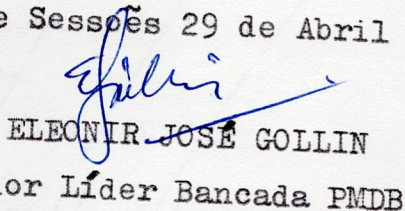 e Sessões 29 de Abril
EGollin
ELEONIR JOSÉ GOLLIN
or Líder Bancada PMDB